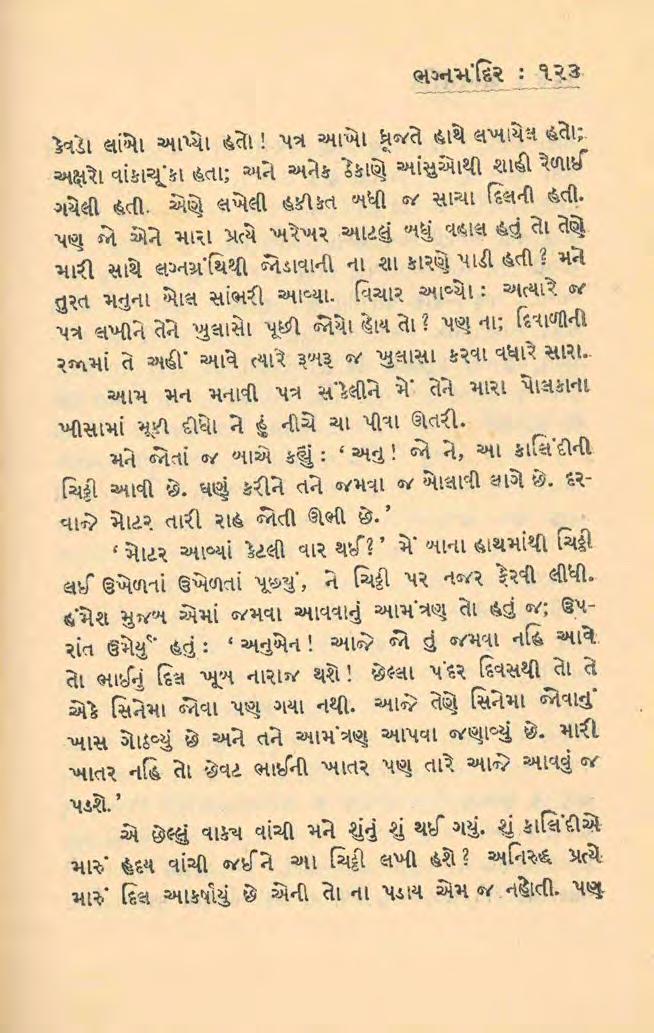 ભગ્નમંદિર : ૧૨૩
કેવડો લાંબો આપ્યો હતો! પત્ર આખો ધ્રૂજતે હાથે લખાયેલ હતો;
અક્ષરો વાંકાચૂંકા હતા; અને અનેક ઠેકાણે આંસુઓથી શાહી રેળાઈ
ગયેલી હતી. એણે લખેલી હકીકત બધી જ સાચા દિલની હતી.
પણ જો એને મારા પ્રત્યે ખરેખર આટલું બધું વહાલ હતું તો તેણે
મારી સાથે લગ્નગ્રંથિથી જોડાવાની ના શા કારણે પાડી હતી? મને
તુરત મનુના બોલ સાંભરી આવ્યા. વિચાર આવ્યો: અત્યારે જ
પત્ર લખીને તેને ખુલાસો પૂછી જોયો હોય તો? પણ ના; દિવાળીની
રજામાં તે અહીં આવે ત્યારે રૂબરૂ જ ખુલાસા કરવા વધારે સારા.
આમ મન મનાવી પત્ર સંકેલીને મેં તેને મારા પોલકાના
ખીસામાં મૂકી દીધો ને હું નીચે ચા પીવા ઊતરી.
મને જોતાં જ બાએ કહ્યું: ‘અનુ! જો ને, આ કાલિંદીની
ચિટ્ઠી આવી છે. ઘણું કરીને તને જમવા જ બોલાવી લાગે છે. દર-
વાજે મોટર તારી રાહ જોતી ઊભી છે.’
‘મોટર આવ્યાં કેટલી વાર થઈ?’ મેં બાના હાથમાંથી ચિટ્ઠી
લઈ ઉખેળતાં ઉખેળતાં પૂછ્યું, ને ચિટ્ઠી પર નજર ફેરવી લીધી.
હંમેશ મુજબ એમાં જમવા આવવાનું આમંત્રણ તો હતું જ; ઉપ-
રાંત ઉમેર્યું હતું: ‘અનુબેન! આજે જો તું જમવા નહિ આવે
તો ભાઈનું દિલ ખૂબ નારાજ થશે! છેલ્લા પંદર દિવસથી તો તે
એકે સિનેમા જોવા પણ ગયા નથી. આજે તેણે સિનેમા જોવાનું
ખાસ ગોઠવ્યું છે અને તને આમંત્રણ આપવા જણાવ્યું છે. મારી
ખાતર નહિ તો છેવટ ભાઈની ખાતર પણ તારે આજે આવવું જ
પડશે.’
એ છેલ્લું વાક્ય વાંચી મને શુંનું શું થઈ ગયું. શું કાલિંદીએ
મારું હૃદય વાંચી જઈને આ ચિટ્ઠી લખી હશે? અનિરુદ્ધ પ્રત્યે
મારું દિલ આકર્ષાયું છે એની તો ના પડાય એમ જ નહોતી. પણ